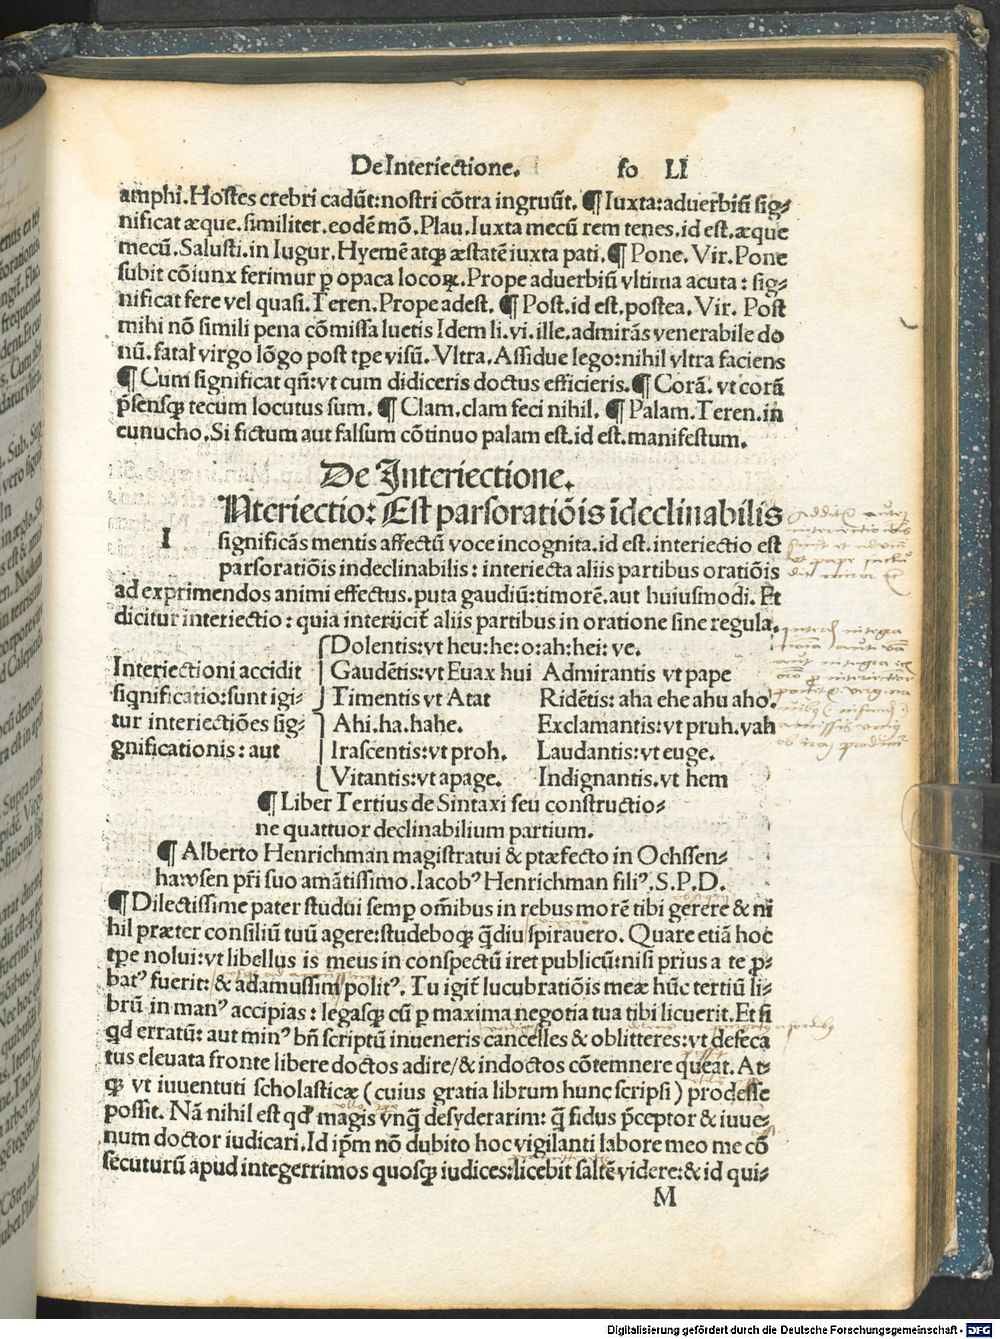 De Interiectione. fo LI
amphi. Hostes crebri cadūt: nostri cōtra ingruūt. ¶ Iuxta: aduerbiū sig-
nificat æque. similiter. eodē mō. Plau. Iuxta mecū rem tenes. id est. æque
mecū. Salusti. in Iugur. Hyemē atqꝫ æstatē iuxta pati. ¶ Pone. Vir. Pone
subit cōiunx ferimur ꝑ opaca locoꝝ. Prope aduerbiū vltima acuta: sig-
nificat fere vel quasi. Teren. Prope adest. ¶ Post. id est. postea. Vir. Post
mihi nō simili pena cōmissa luetis Idem li. vi. ille. admirās venerabile do
nū. fatał virgo lōgo post tꝑe visū. Vltra. Assidue lego: nihil vltra faciens
¶ Cum significat qñ: vt cum didiceris doctus efficieris. ¶ Corā. vt corā
p̄sensqꝫ tecum locutus sum. ¶ Clam. clam feci nihil. ¶ Palam. Teren. in
eunucho. Si fictum aut falsum cōtinuo palam est. id est. manifestum.
De Interiectione.
I Nteriectio: Est pars oratiōis īdeclinabilis
significās mentis affectū voce incognita. id est. interiectio est
pars oratiōis indeclinabilis: interiecta aliis partibus oratiōis
ad exprimendos animi effectus. puta gaudiū: timorē. aut huiusmodi. Et
dicitur interiectio: quia interiicit̄ aliis partibus in oratione sine regula.
Dolentis: vt heu: he: o: ah: hei: ve.
Interiectioni accidit Gaudētis: vt Euax hui Admirantis vt pape
significatio: sunt igi- Timentis vt Atat Ridētis: aha ehe ahu aho.
tur interiectiōes sig- Ahi. ha. hahe. Exclamantis: vt pruh. vah
gnificationis: aut Irascentis: vt proh. Laudantis: vt euge.
Vitantis: vt apage. Indignantis. vt hem
¶ Liber Tertius de Sintaxi seu constructio-
ne quattuor declinabilium partium.
¶ Alberto Henrichman magistratui & præfecto in Ochssen-
hawsen pr̄i suo amātissimo. Iacobꝰ Henrichman filiꝰ. S. P. D.
¶ Dilectissime pater studui semꝑ om̄ibus in rebus morē tibi gerere & ni
hil præter consiliū tuū agere: studeboqꝫ q̄diu spirauero. Quare etiā hoc
tꝑe nolui: vt libellus is meus in conspectū iret publicū: nisi prius a te ꝓ-
batꝰ fuerit: & adamussim politꝰ. Tu igit̄ lucubratiōis meæ hūc tertiū li-
brū in manꝰ accipias: legasqꝫ cū ꝑ maxima negotia tua tibi licuerit. Et si
qd erratū: aut minꝰ bn̄ scriptū inueneris cancelles & oblitteres: vt defeca
tus eleuata fronte libere doctos adire / & indoctos cōtemnere queat. At-
qꝫ vt iuuentuti scholasticæ (cuius gratia librum hunc scripsi) prodesse
possit. Nā nihil est qd magis vnq̄ desyderarim: q̄ fidus p̄ceptor & iuue-
num doctor iudicari. Id ip̄m nō dubito hoc vigilanti labore meo me cō
secuturū apud integerrimos quosqꝫ iudices: licebit saltē videre: & id qui-
M
Digitalisierung gefördert durch die Deutsche Forschungsgemeinschaft - DFG